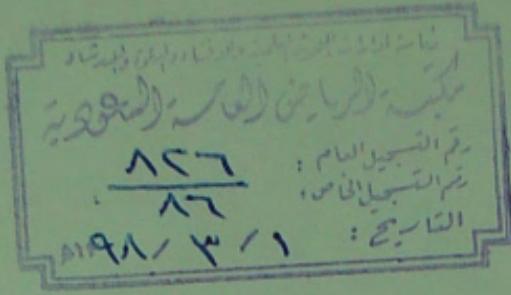 رئاسة إدارات البحوث العلمية والإفتاء والدعوة والإرشاد
مكتبة الرياض العامة السعودية
رقم التسجيل العام : ٨٢٦
رقم التسجيل الخاص : ٨٦
التاريخ : ١ / ٣ / ٩٨ ١٣هـ